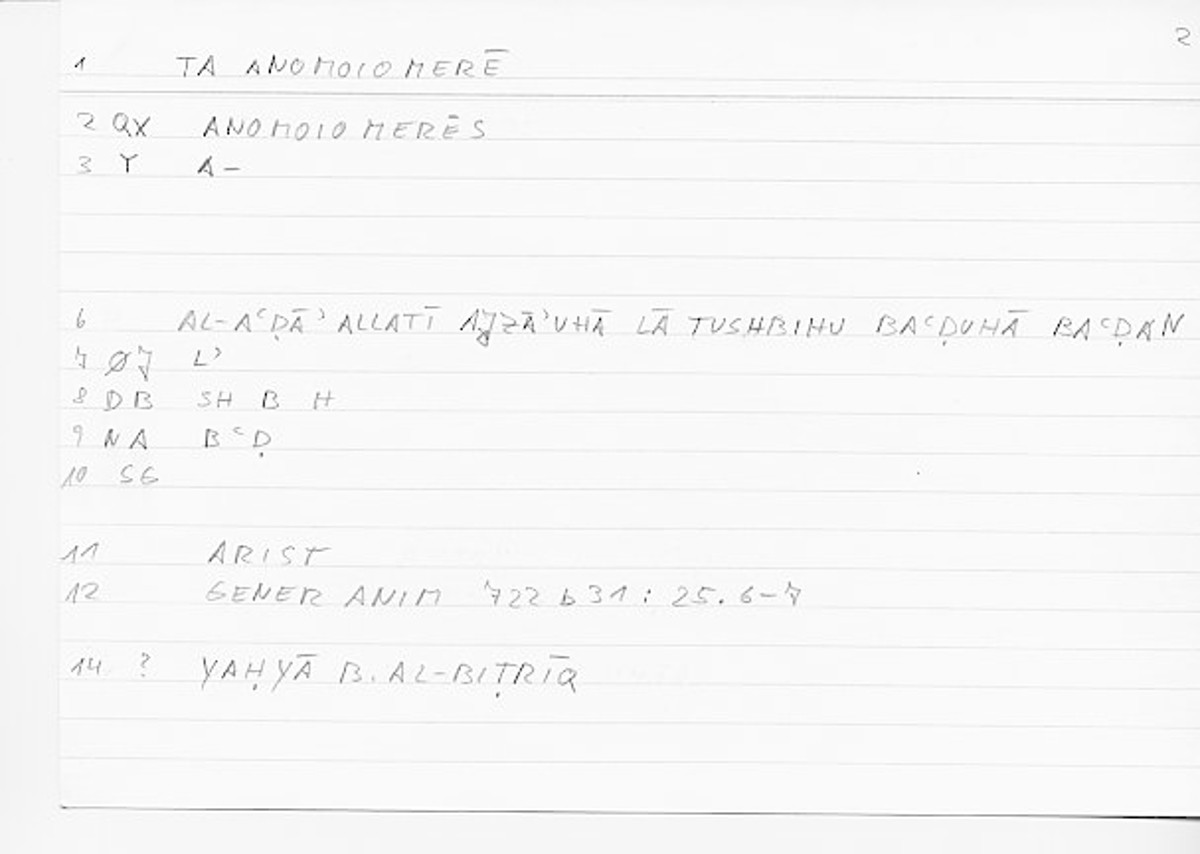 2
1 TA ANOMOIOMERĒ
2 QX ANOMOIOMERĒS
3 Y A-
6 AL-AʿḌĀʾ ALLATĪ AJZĀʾUHĀ LĀ TUSHBIHU BAʿḌUHĀ BAʿḌAN
7 ØJ Lʾ
8 DB SH B H
9 NA B ʿ Ḍ
10 SG
11 ARIST
12 GENER ANIM 722 b 31 : 25.6-7
14 ? YAḤYĀ B. AL-BIṬRĪQ